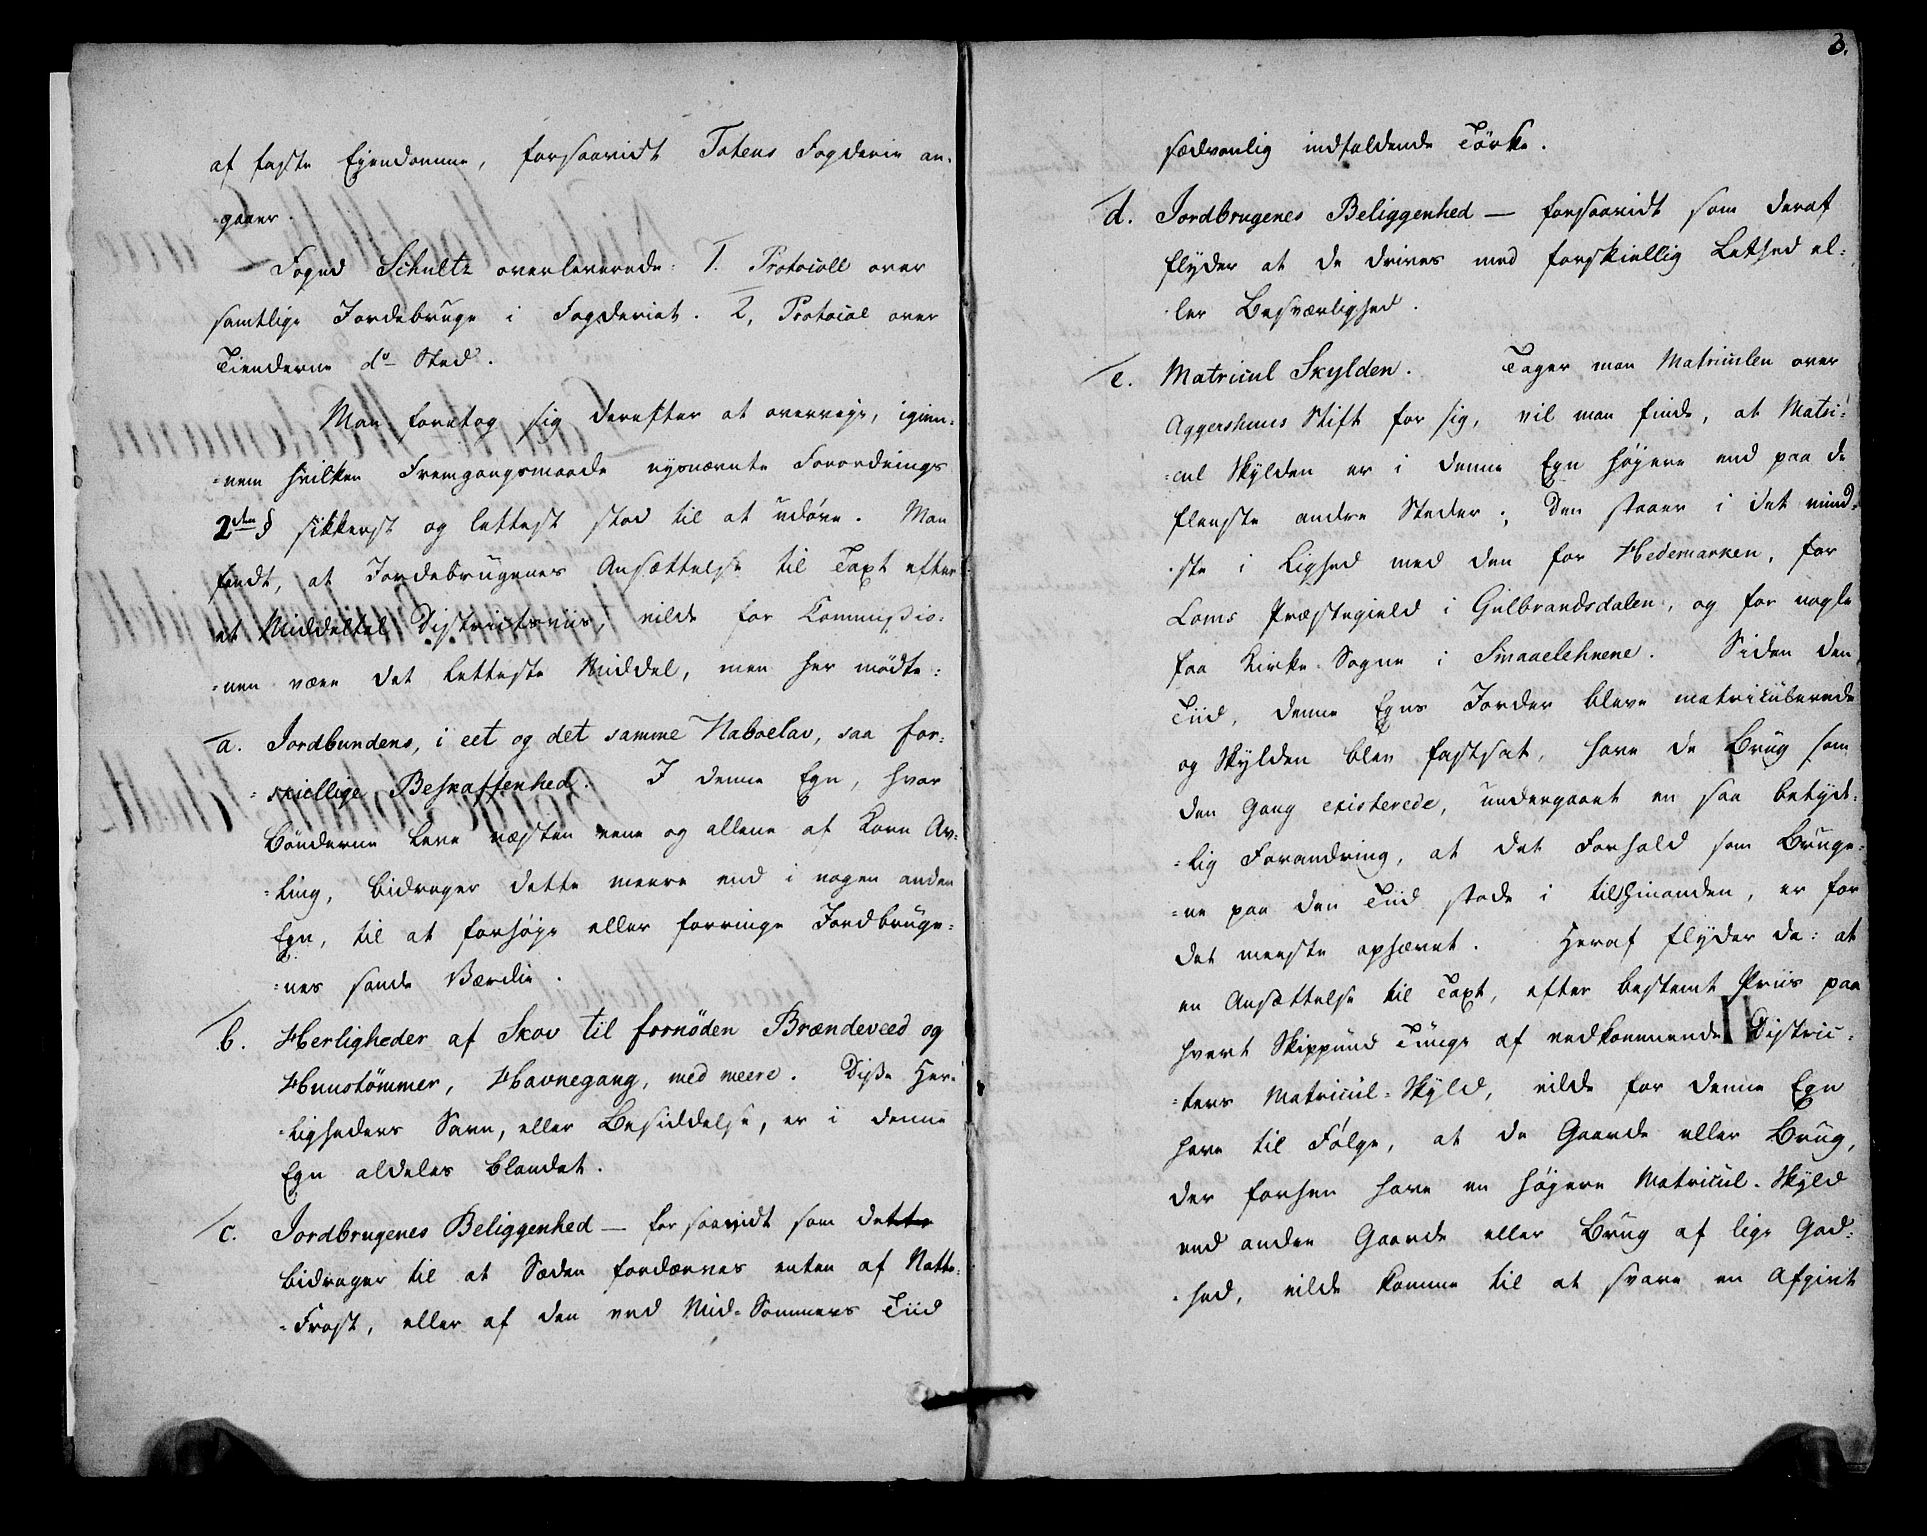 af faste Ejendomme, forsaavidt Totens Fogderie an-
-gaaer.
Foged Schultz overleverede: 1. Protocoll over
samtlige Jordebruge i Fogderiet. 2, Protocol over
Tienderne do Sted.
Man foretog sig derefter at overveje, igien-
-nem hvilken Fremgangsmaade nysnævnte Forordnings
2den § sikkerst og lettest stod til at udøve. Man
fandt, at Jordebrugenes Ansættelse til Taxt efter
et Middeltal Districtsviis, vilde for Commißio-
-nen være det letteste Middel, men her mødte:
a. Jordbundens, i eet og det samme Naboelav, saa for-
-skiellige Beskaffenhed. I denne Egn, hvor
Bønderne leve næsten eene og allene af Korn Av-
-ling, bidrager dette meere end i nogen anden
Egn, til at forhøje eller forringe Jordbruge-
-nes sande Værdie.
b. Herligheder af Skov til fornøden Brændeveed og
Huustømmer, Havnegang, med meere. Diße Her-
-ligheders Savn, eller Besiddelse, er i denne
Egn aldeles blandet.
c. Jordbrugenes Beliggenhed — forsaavidt som dette
bidrager til at Sæden fordærves enten af Natte-
-Frost, eller af den ved Mid-Sommers Tiid
3.
sædvanlig indfaldende Tørke.
d. Jordbrugenes Beliggenhed — forsaavidt som deraf
flyder at de drives med forskiellig Lethed el-
-ler Besværlighed.
e. Matricul Skylden. Tager man Matriculen over
Aggershuus Stift for sig, vil man finde, at Matri-
-cul Skylden er i denne Egn høyere end paa de
fleeste andre Steder; den staaer i det mind-
-ste i Lighed med den for Hedemarken, for
Loms Præstegield i Gulbrandsdalen, og for nogle
faa Kirke-Sogne i Smaaelehnene. Siden den
Tiid, denne Egns Jorder bleve matriculerede
og Skylden blev fastsat, have de Brug som
den Gang existerede, undergaaet en saa betyde-
-lig Forandring, at det Forhold som Bruge-
-ne paa den Tiid stode i til hinanden, er for
det meeste ophævet. Heraf flyder da: at
en Ansættelse til Taxt, efter bestemt Priis paa
hvert Skippund Tunge af vedkommende Distric-
-ters Matricul-Skyld, vilde for denne Egn
have til Følge, at de Gaarde eller Brug,
der forhen have en høyere Matricul-Skyld
end andre Gaarde eller Brug af lige God-
-hed, vilde komme til at svare en Afgivt